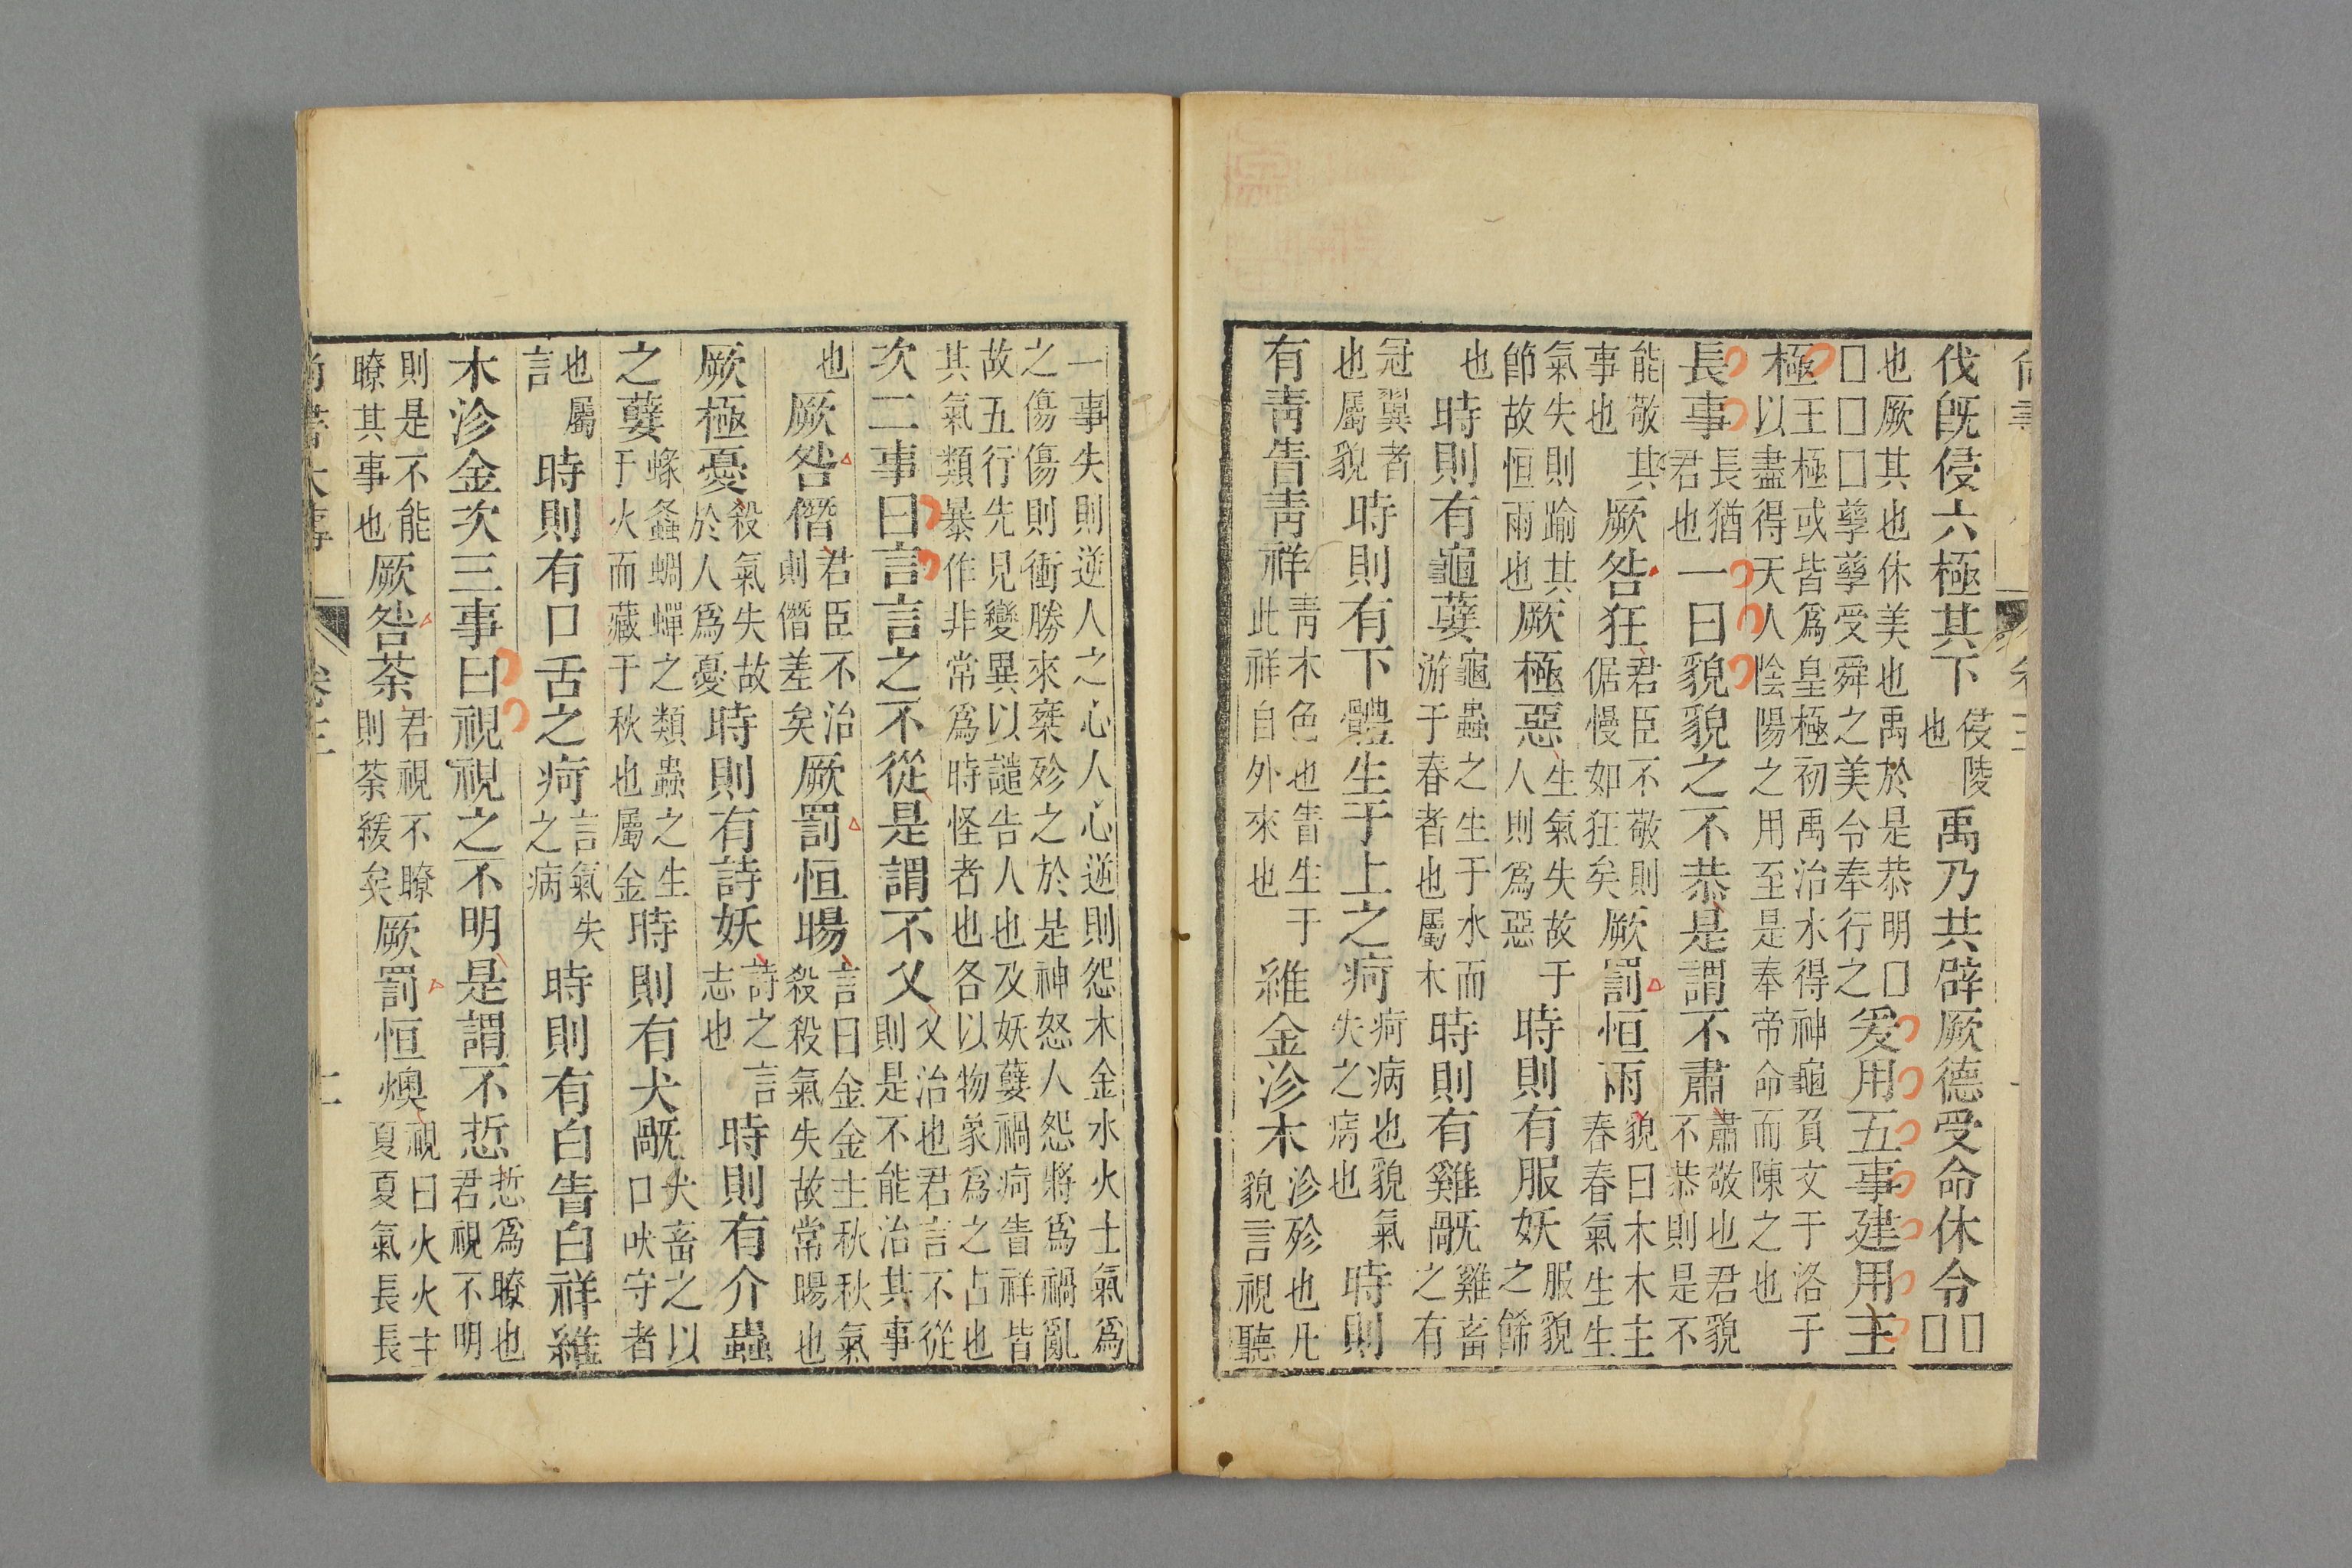 伐旣侵六極其下侵陵也禹乃共辟厥德受命休令□□
也厥其也休美也禹於是恭明□□□□孽孽受舜之美令奉行之爰用五事建用王
極王極或皆爲皇極初禹治水得神龜負文于洛于以盡得天人陰陽之用至是奉帝命而陳之也
長事長猶君也一曰貌貌之不恭是謂不肅肅敬也君貌不恭則是不
能敬其事也厥咎狂君臣不敬則倨慢如狂矣厥罰恒雨貌曰木木主春春氣生生
氣失則踰其節故恒雨也厥極惡生氣失故于人則爲惡時則有服妖服貌之飾
也時則有龜孽龜蟲之生于水而游于春者也屬木時則有雞旤雞畜之有
冠翼者也屬貌時則有下體生于上之痾痾病也貌氣失之病也時則
有靑眚靑祥靑木色也眚生于此祥自外來也維金沴木沴殄也凡貌言視聽
一事失則逆人之心人心逆則怨木金水火土氣爲之傷傷則衝勝來椉殄之於是神怒人怨將爲禍亂
故五行先見變異以譴告人也及妖孽禍痾眚祥皆其氣類暴作非常爲時怪者也各以物象爲之占也
次二事曰言言之不從是謂不乂乂治也君言不從則是不能治其事
也厥咎僭君臣不治則僭差矣厥罰恒暘言曰金金主秋秋氣殺殺氣失故常暘也
厥極憂殺氣失故於人爲憂時則有詩妖詩之言志也時則有介蟲
之孽蝝螽蜩蟬之類蟲之生于火而藏于秋也屬金時則有犬旤犬畜之以口吠守者
也屬言時則有口舌之痾言氣失之病時則有白眚白祥維
木沴金次三事曰視視之不明是謂不悊悊爲瞭也君視不明
則是不能瞭其事也厥咎荼君視不瞭則荼緩矣厥罰恒燠視曰火火主夏夏氣長長